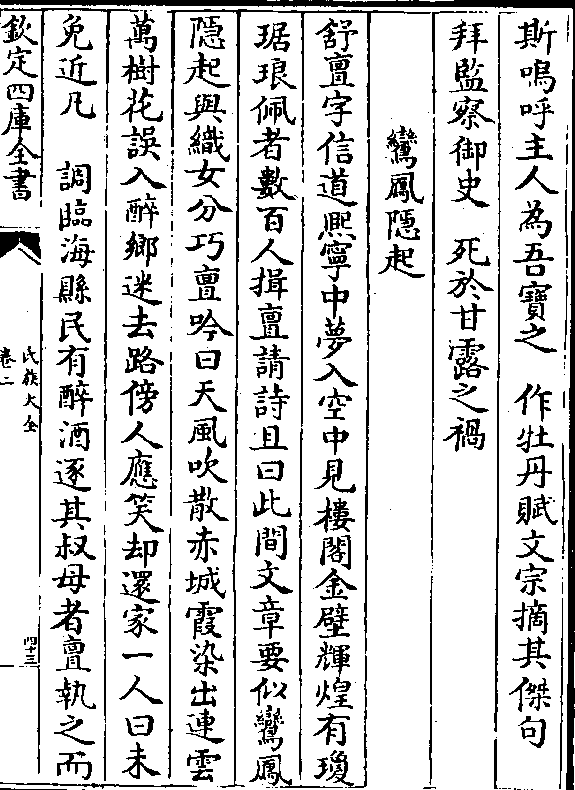 斯嗚呼主人為吾寶之　作牡丹賦文宗摘其傑句
拜監察御史　死於甘露之禍
鸞鳳隱起
舒亶字信道熙寧中夢入空中見樓閣金壁輝煌有瓊
琚琅佩者數百人揖亶請詩且曰此間文章要似鸞鳳
隱起與織女分巧亶吟曰天風吹散赤城霞染出連雲
萬樹花誤入醉鄉迷去路傍人應笑却還家一人曰未
免近凡　調臨海縣民有醉酒逐其叔母者亶執之而
欽定四庫全書
氏族大全
卷二
四十三